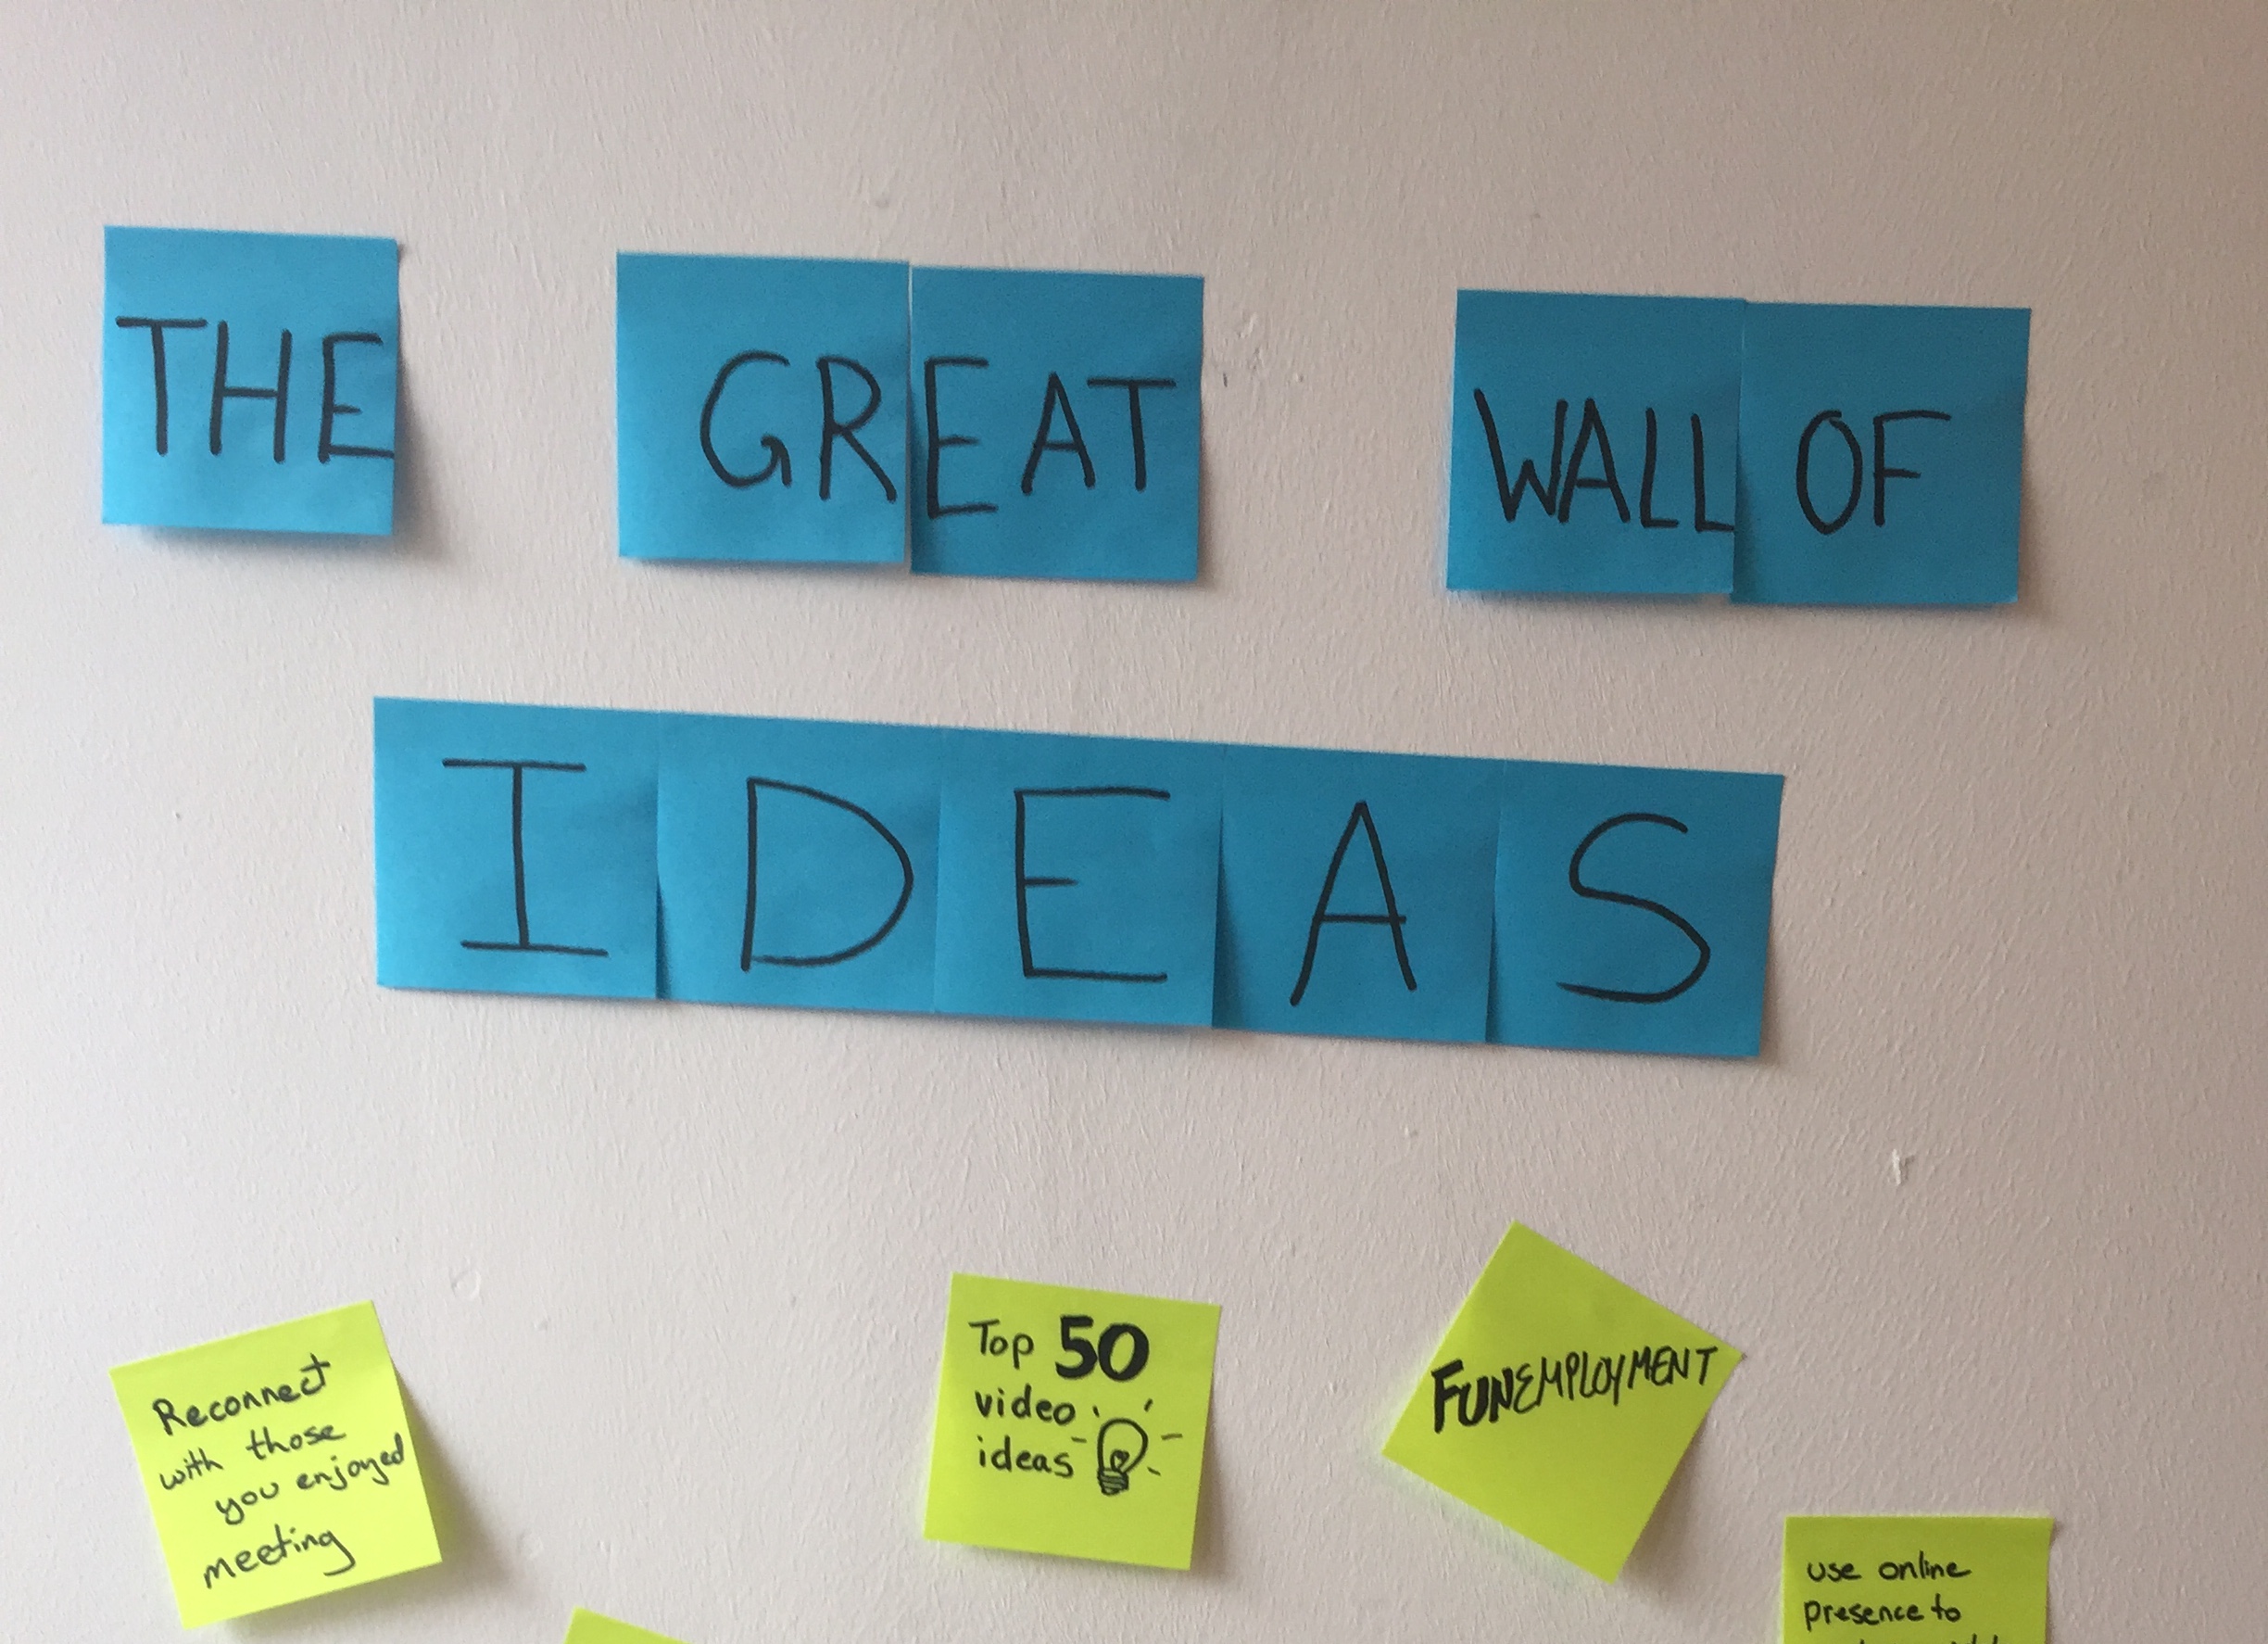 THE GREAT WALL OF
IDEAS
Reconnect
with those
you enjoyed
meeting
Top 50
video
ideas
FUNEMPLOYMENT
use online
presence to